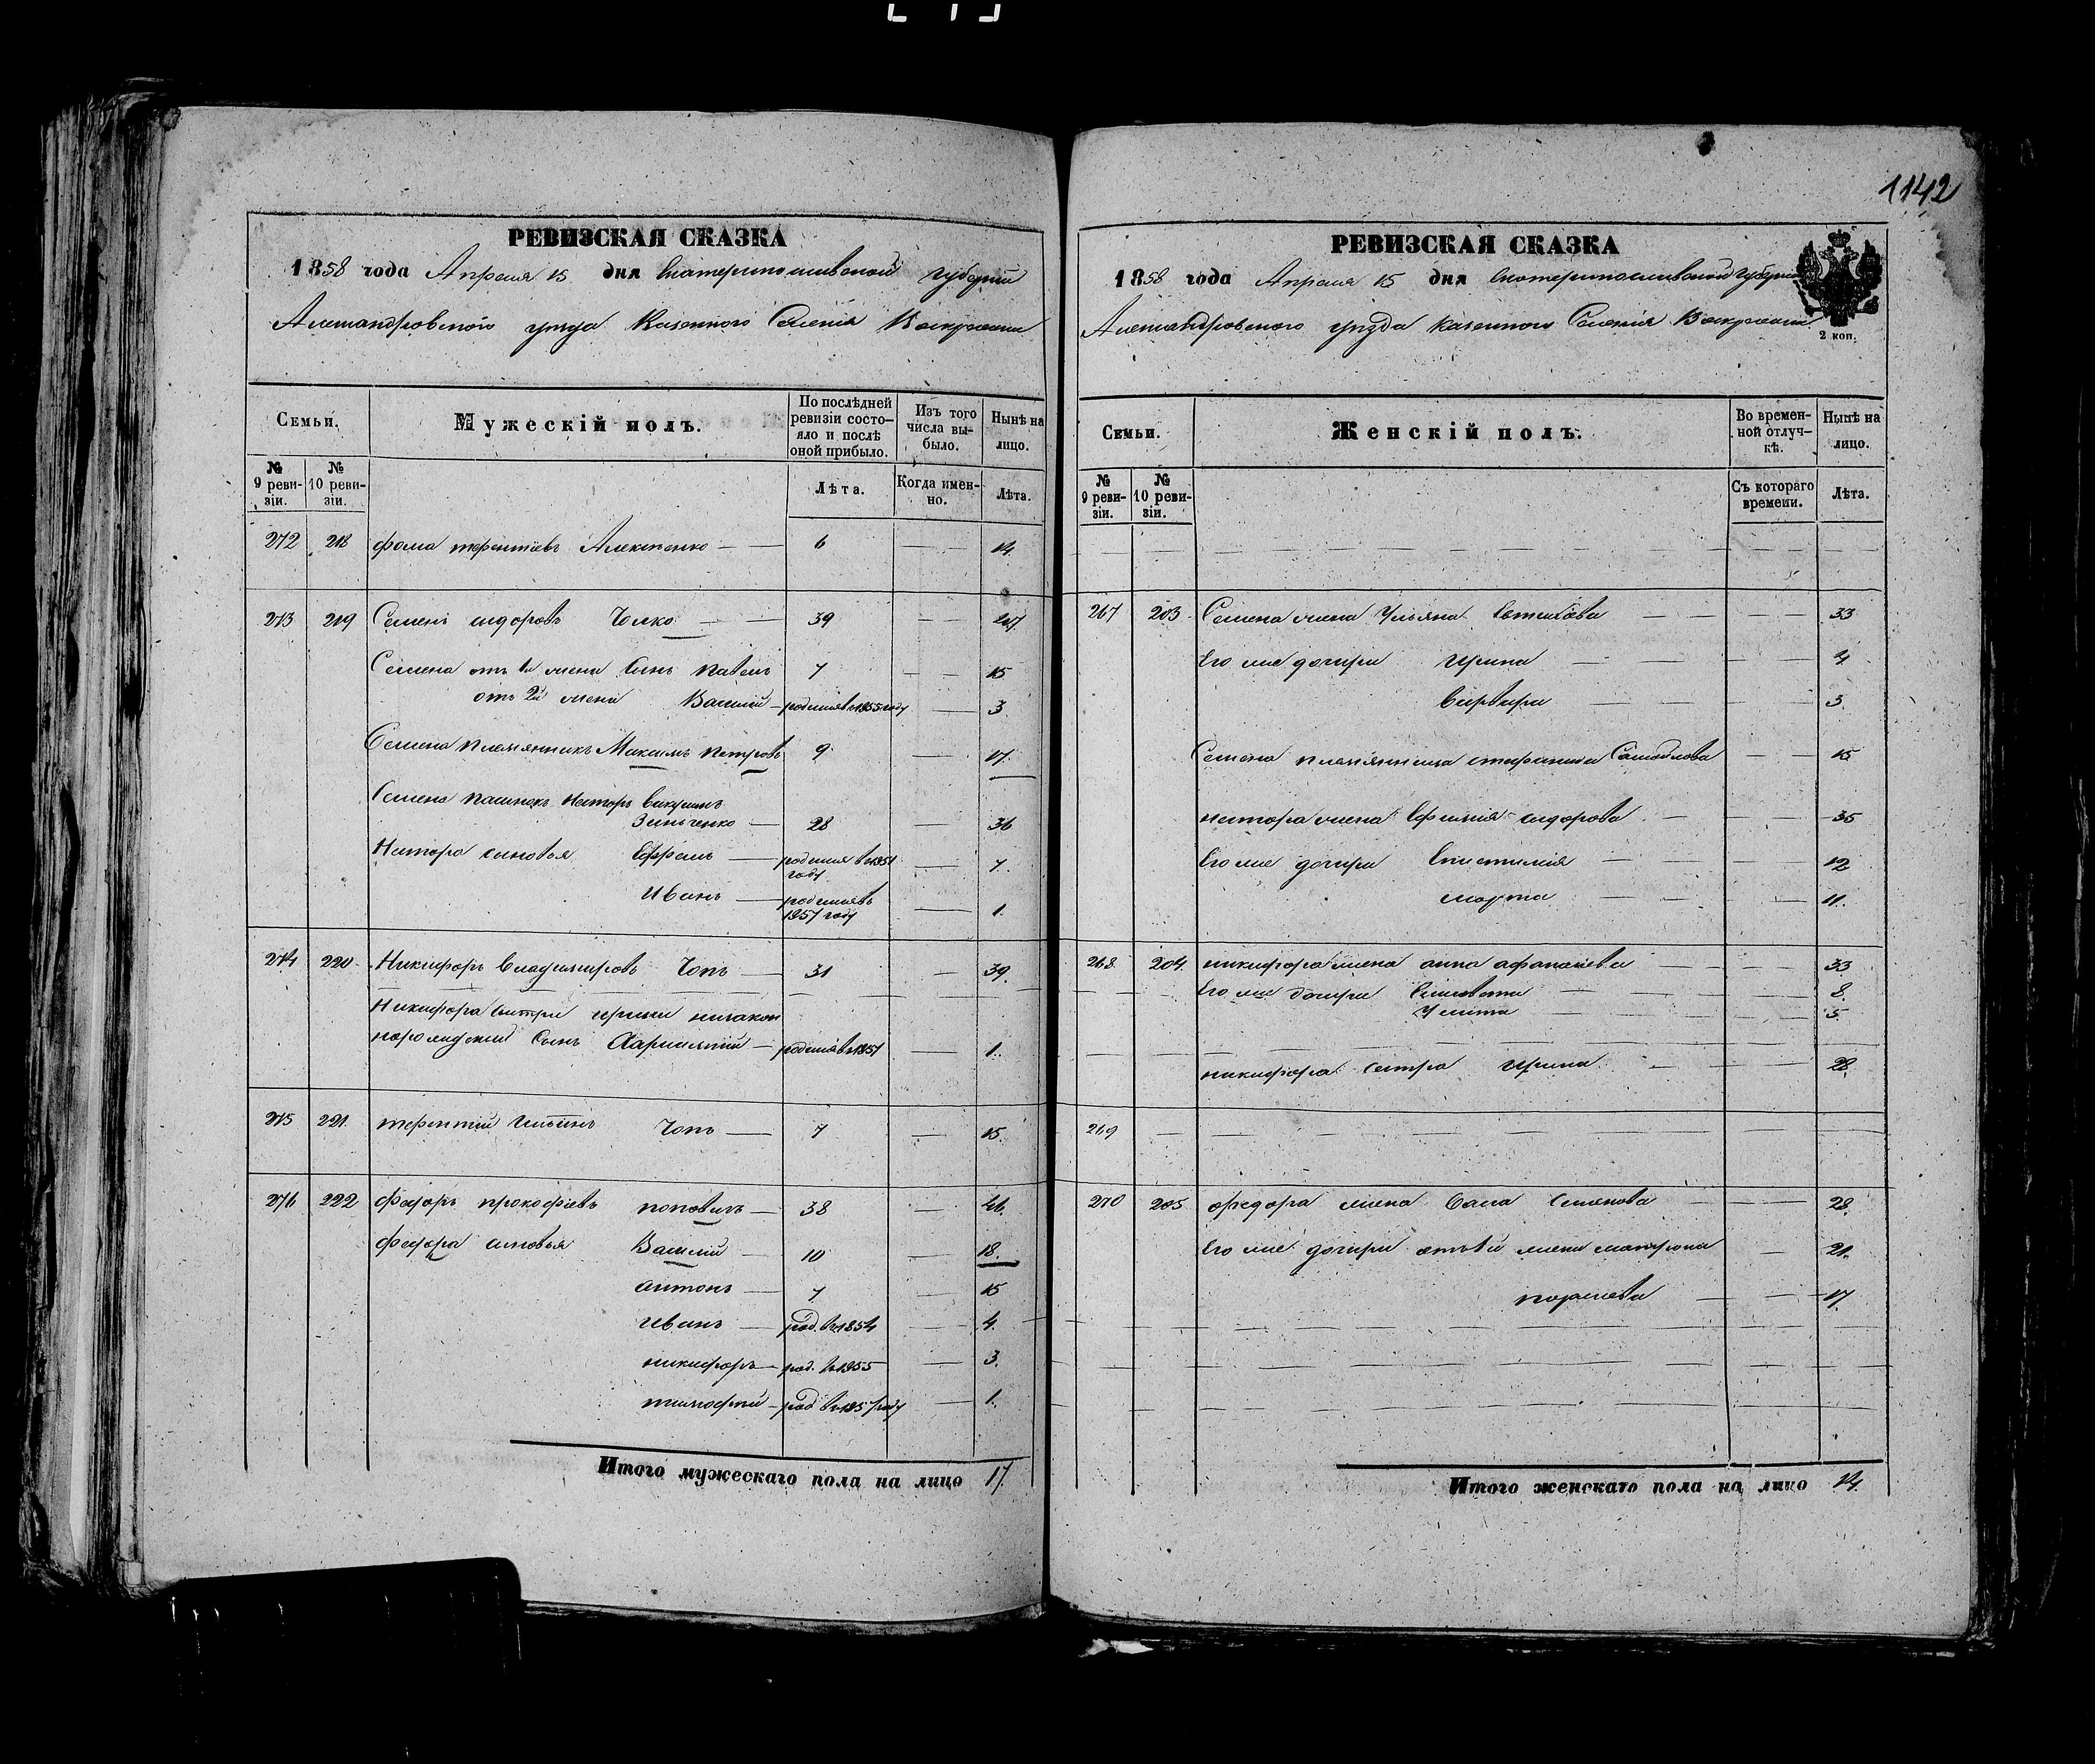 1142
РЕВИЗСКАЯ СКАЗКА
1858 года Апреля 15 дня Екатеринославской губернии
Александровского уезда Казенного Селенія Воскресенки
Семьи.
Мужескій полъ.
По послѣдней ревизіи состо-
яло и послѣ оной прибыло.
Изъ того числа вы-
было.
Нынѣ на лицо.
№ 9 реви-
зіи.
№ 10 реви-
зіи.
Лѣта.
Когда имен-
но.
Лѣта.
272 218 фома терентіевъ Алексенко 6 14.
273 219 Семенъ сидоровъ 39 47.
Семена отъ 1й жены Сынъ Павелъ 7 15
отъ 2й жены Василій родился въ 1855 году 3
Семена племянникъ Максимъ Петровъ 9 17.
Семена пасинокъ Несторъ
Зинченко 28 36
Нестора сыновья Ефремъ родился въ 1851 году 7
Иванъ родился въ 1857 году 1.
274 220 Никифоръ Владимировъ Чопъ 31 39.
Никифора сестры ирины незакон
норожденый Сынъ родился въ 1857 1.
275 221. терентій Ильинъ Чопъ 7 15.
276 222 федоръ прокофіевъ поповичъ 38 46.
федора сыновья Василій 10 18.
антонъ 7 15
Иванъ род. въ 1854 4.
никифоръ род. въ 1855 3.
тимофей род въ 1857 году 1.
Итого мужескаго пола на лицо 17.
РЕВИЗСКАЯ СКАЗКА
1858 года Апреля 15 дня Екатеринославской Губерніи
Александровского уезда Казенного Селенія Воскресенки
2 коп.
Семьи.
Женскій полъ.
Во времен-
ной отлуч-
кѣ.
Нынѣ на лицо.
№ 9 реви-
зіи.
№ 10 реви-
зіи.
Съ котораго времени.
Лѣта.
267 203 Семена жена Ульяна Евтихіева 33
Его же дочери Ирина 4
Варвара 3
Семена племянница стефанида Самойлова 15
нестора жена Ефимія сидорова 35
Его же дочери 12
марта 11.
268 204. никифора жена анна афанасіева 33
Его же дочери Елисавета 8.
Улита 5.
никифора сестра Ирина 28.
269
270 205 федора жена Семенова 28.
Его же дочери отъ 1й жены матрона 21.
17.
Итого женскаго пола на лицо 14.